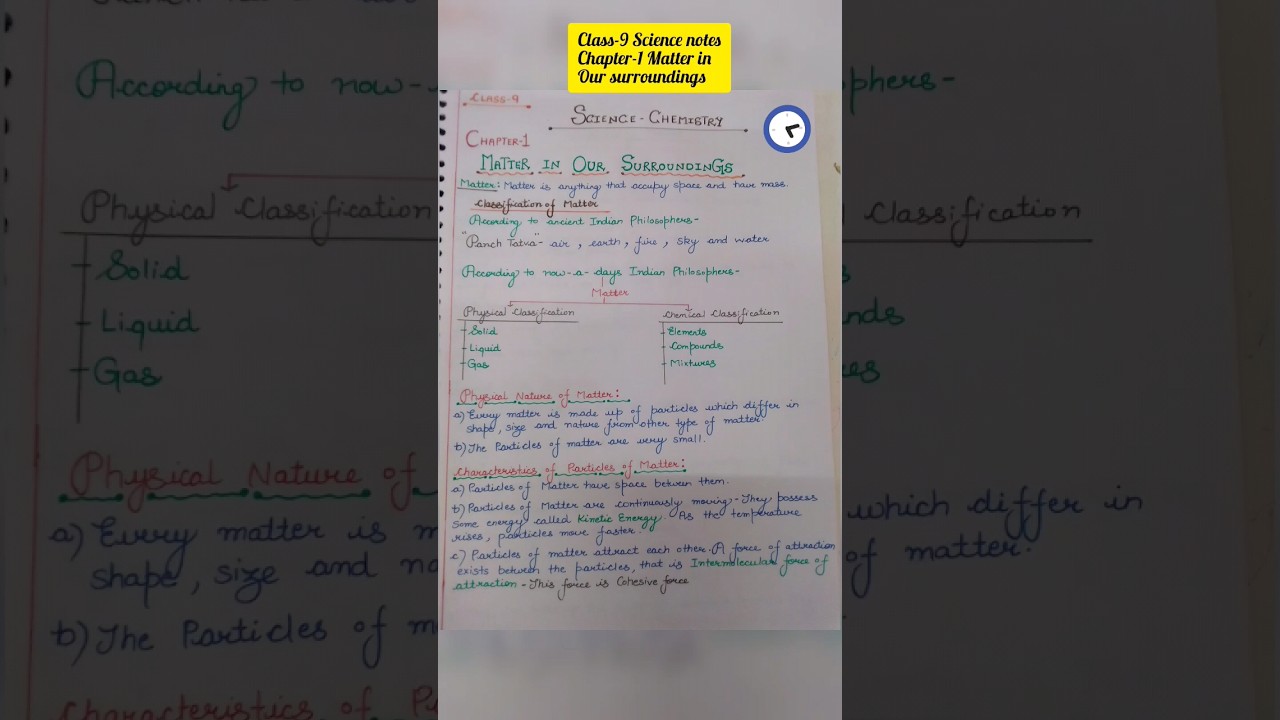 Class-9 Science notes
Chapter-1 Matter in
Our surroundings
CLASS-9
SCIENCE-CHEMISTRY
CHAPTER-1
MATTER IN OUR SURROUNDINGS
Matter: Matter is anything that occupy space and have mass.
Classification of Matter
According to ancient Indian Philosophers-
"Panch Tatva"- air, earth, fire, sky and water
According to now-a-days Indian Philosophers-
Matter
Physical Classification
Solid
Liquid
Gas
Chemical Classification
Elements
Compounds
Mixtures
Physical Nature of Matter:
a) Every matter is made up of particles which differ in
shape, size and nature from other type of matter.
b) The Particles of matter are very small.
Characteristics of Particles of Matter:
a) Particles of Matter have space betwen them.
b) Particles of Matter are continuously moving - They possess
Some energy called Kinetic Energy. As the temperature
rises, particles move faster.
c) Particles of matter attract each other. A force of attraction
exists between the particles, that is Intermolecular force of
attraction - This force is Cohesive force
According to now-
phers-
Physical Classification
Classification
Solid
Liquid
nds
Gas
es
Physical Nature of
a) Every matter is m
which differ in
shape, size and na
of matter.
b) The Particles of m
Characteristics of P